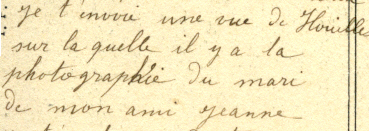 je t'envoie une vue de Houilles
sur laquelle il y a la
photographie du mari
de mon ami jeanne